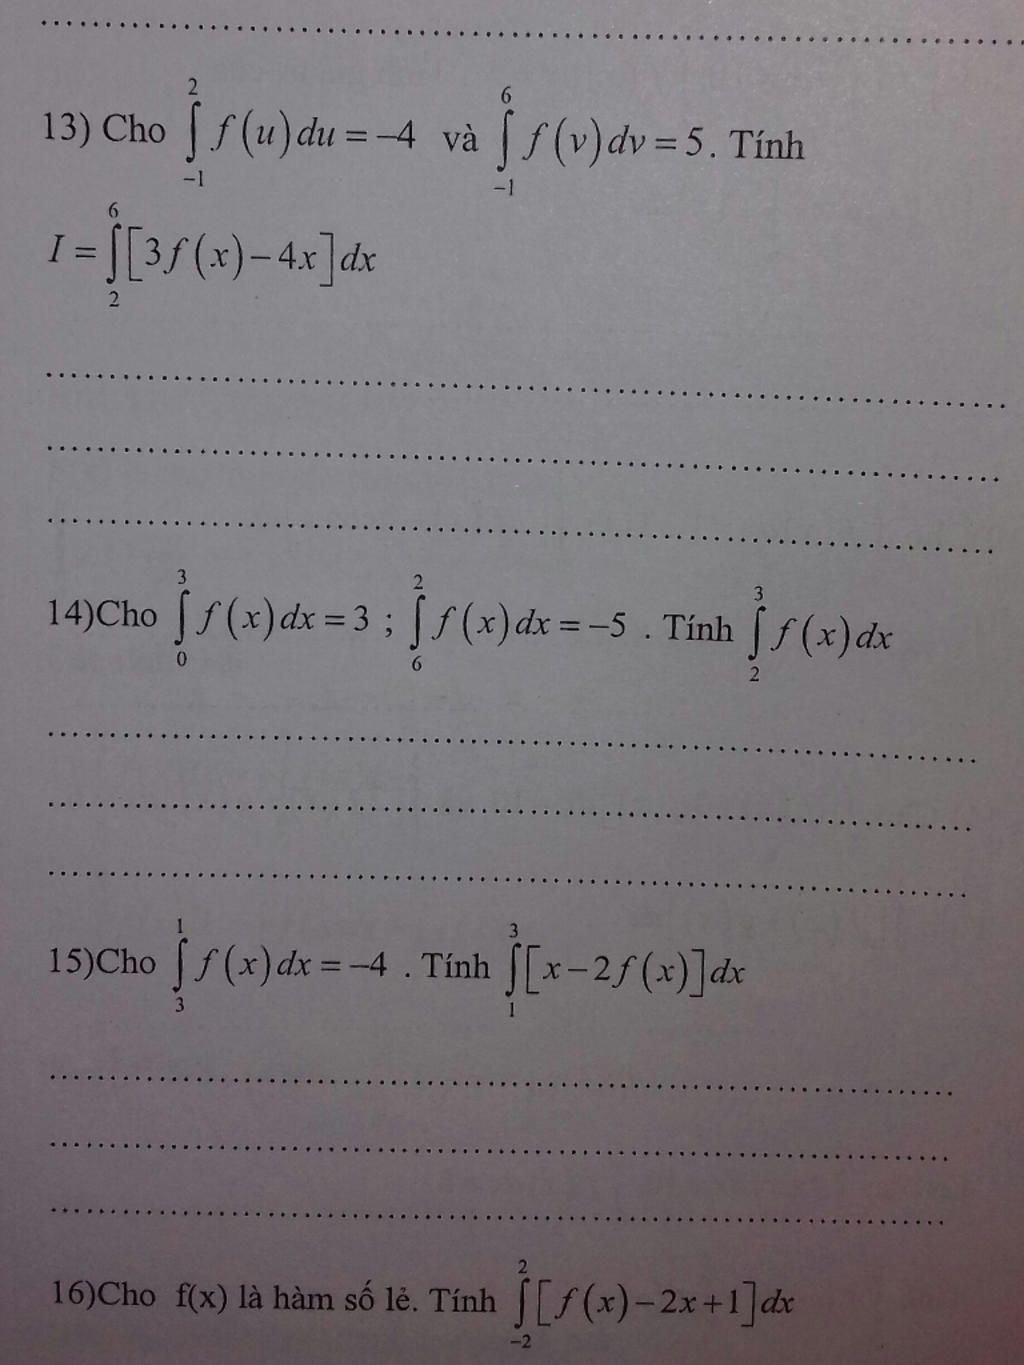 13) Cho ∫₋₁² f(u)du = −4 và ∫₋₁⁶ f(v)dv = 5. Tính
I = ∫₂⁶ [3f(x) − 4x]dx
14)Cho ∫₀³ f(x)dx = 3 ; ∫₆² f(x)dx = −5 . Tính ∫₂³ f(x)dx
15)Cho ∫₃¹ f(x)dx = −4 . Tính ∫₁³ [x − 2f(x)]dx
16)Cho f(x) là hàm số lẻ. Tính ∫₋₂² [f(x) − 2x + 1]dx